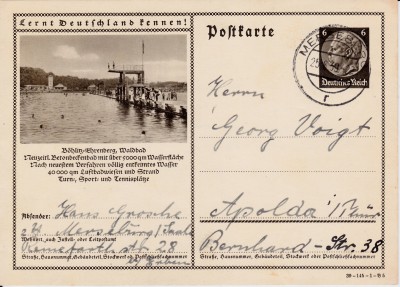 Lernt Deutschland kennen!
Postkarte
6 6
Deutsches Reich
Böhlitz-Ehrenberg, Waldbad
Neuzeitl. Betonbeckenbad mit über 5000 qm Wasserfläche
Nach neuestem Verfahren völlig entkeimtes Wasser
40000 qm Luftbadwiesen und Strand
Turn-, Sport- und Tennisplätze
Herrn
Georg Voigt
Apolda i/Thür
Bernhard-Str. 38
Absender: Hans Grosche
z. Zt. Merseburg/Saale
Wohnort, auch Zustell- oder Leitpostamt
str. 28
Straße, Hausnummer, Gebäudeteil, Stockwerk od. Postschließfachnummer
Straße, Hausnummer, Gebäudeteil, Stockwerk oder Postschließfachnummer